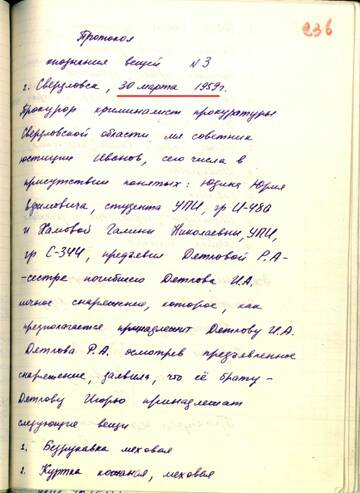 236
Протокол
опознания вещей N 3
г. Свердловск, 30 марта 1959 г.
Прокурор криминалист прокуратуры
Свердловской области мл советник
юстиции Иванов, сего числа в
присутствии понятых: Юдина Юрия
студента УПИ, гр И-480
и Хамовой Галины Николаевны, УПИ,
гр С-344, предъявил Дятловой Р.А-
-сестре погибшего Дятлова И.А.
личное снаряжение, которое, как
предполагается принадлежит Дятлову И.А.
Дятлова Р.А. осмотрев предъявленное
снаряжение, заявила, что её брату-
Дятлову Игорю принадлежат
следующие вещи
1. Безрукавка меховая
2. Куртка кожаная, меховая